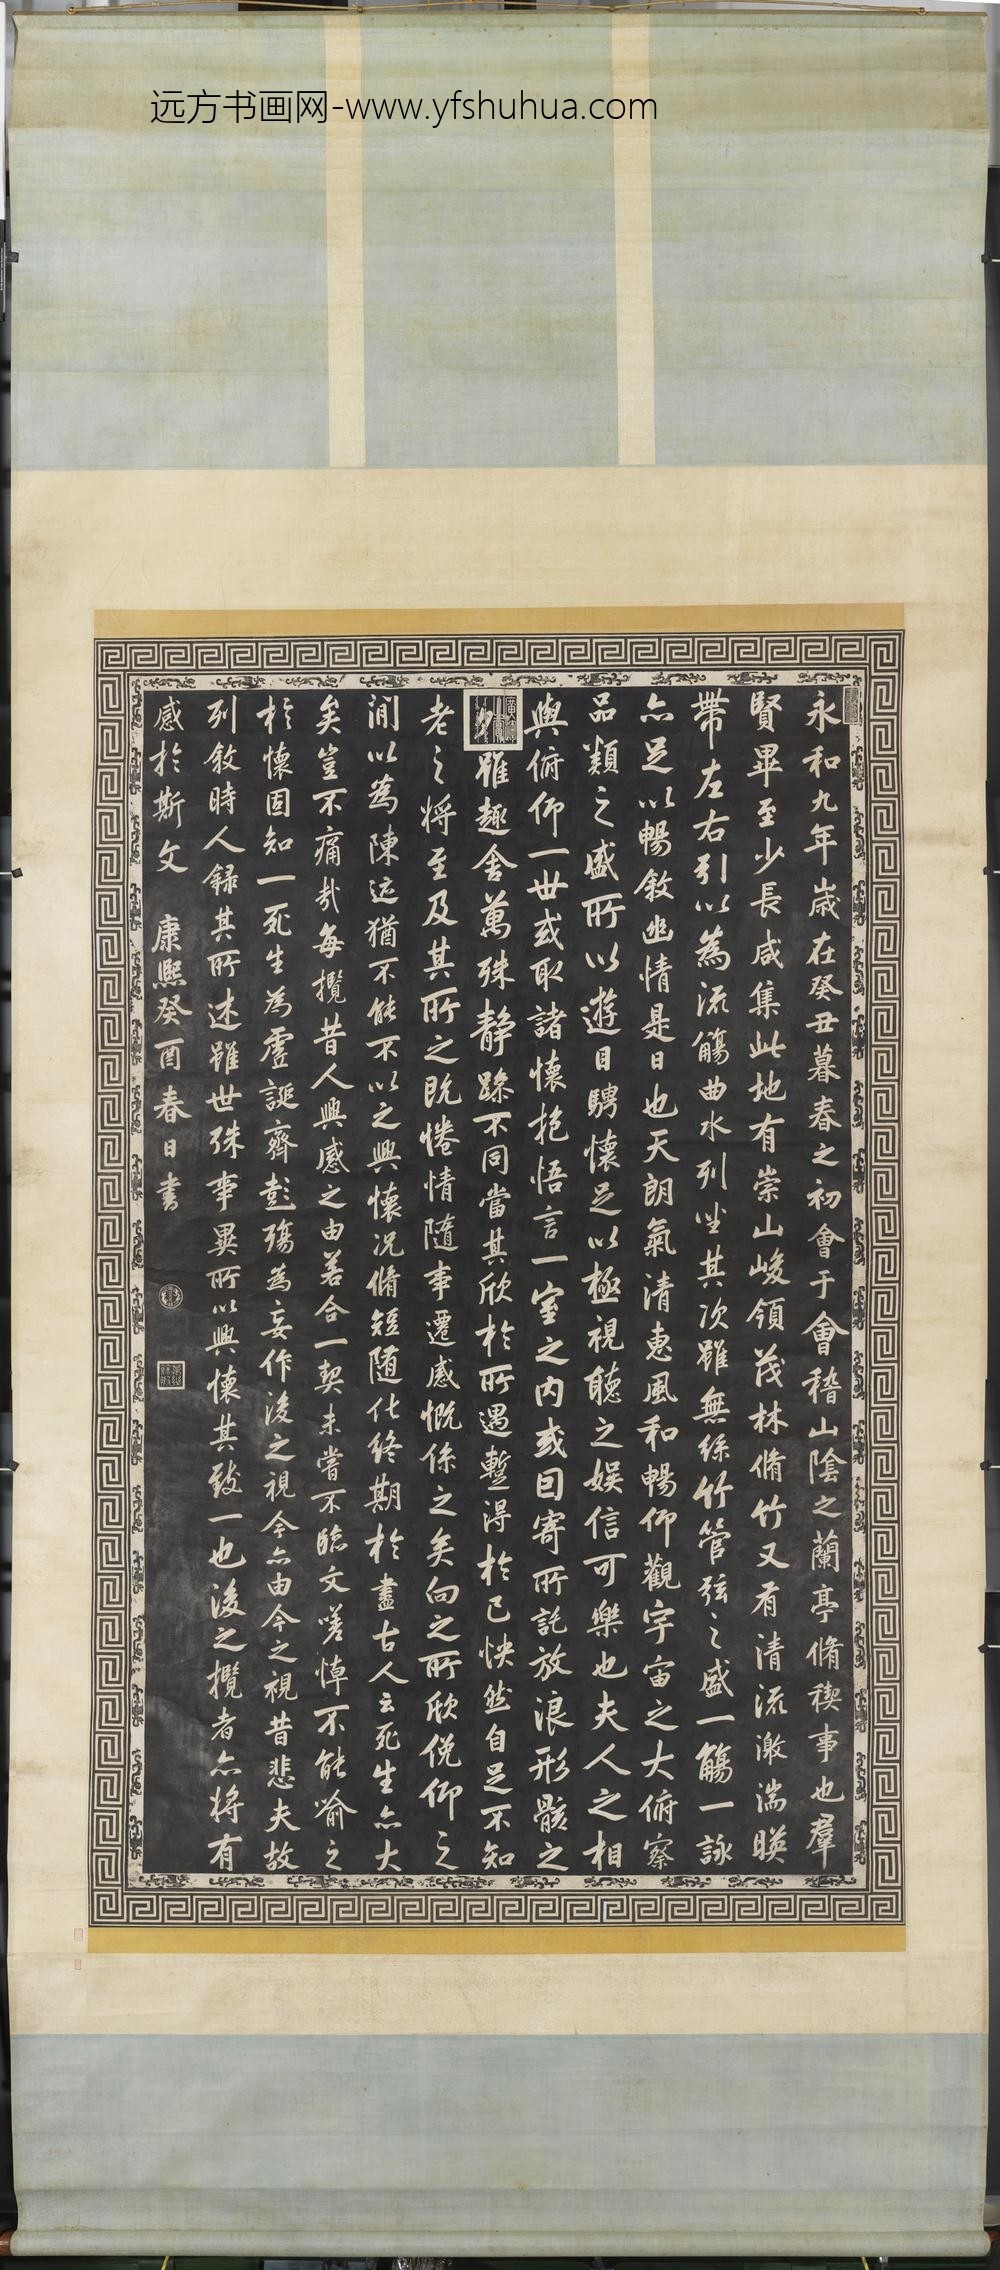 远方书画网-www.yfshuhua.com
永和九年歲在癸丑暮春之初會于會稽山陰之蘭亭脩稧事也羣
賢畢至少長咸集此地有崇山峻領茂林脩竹又有清流激湍暎
帶左右引以為流觴曲水列坐其次雖無絲竹管弦之盛一觴一詠
亦足以暢敘幽情是日也天朗氣清惠風和暢仰觀宇宙之大俯察
品類之盛所以遊目騁懷足以極視聽之娛信可樂也夫人之相
與俯仰一世或取諸懷抱悟言一室之內或因寄所託放浪形骸之
雖趣舍萬殊靜躁不同當其欣於所遇暫得於己怏然自足不知
老之將至及其所之既惓情隨事遷感慨係之矣向之所欣俛仰之
閒以為陳迹猶不能不以之興懷況脩短隨化終期於盡古人云死生亦大
矣豈不痛哉每攬昔人興感之由若合一契未嘗不臨文嗟悼不能喻之
於懷固知一死生為虛誕齊彭殤為妄作後之視今亦由今之視昔悲夫故
列敘時人錄其所述雖世殊事異所以興懷其致一也後之攬者亦將有
感於斯文 康熙癸酉春日書